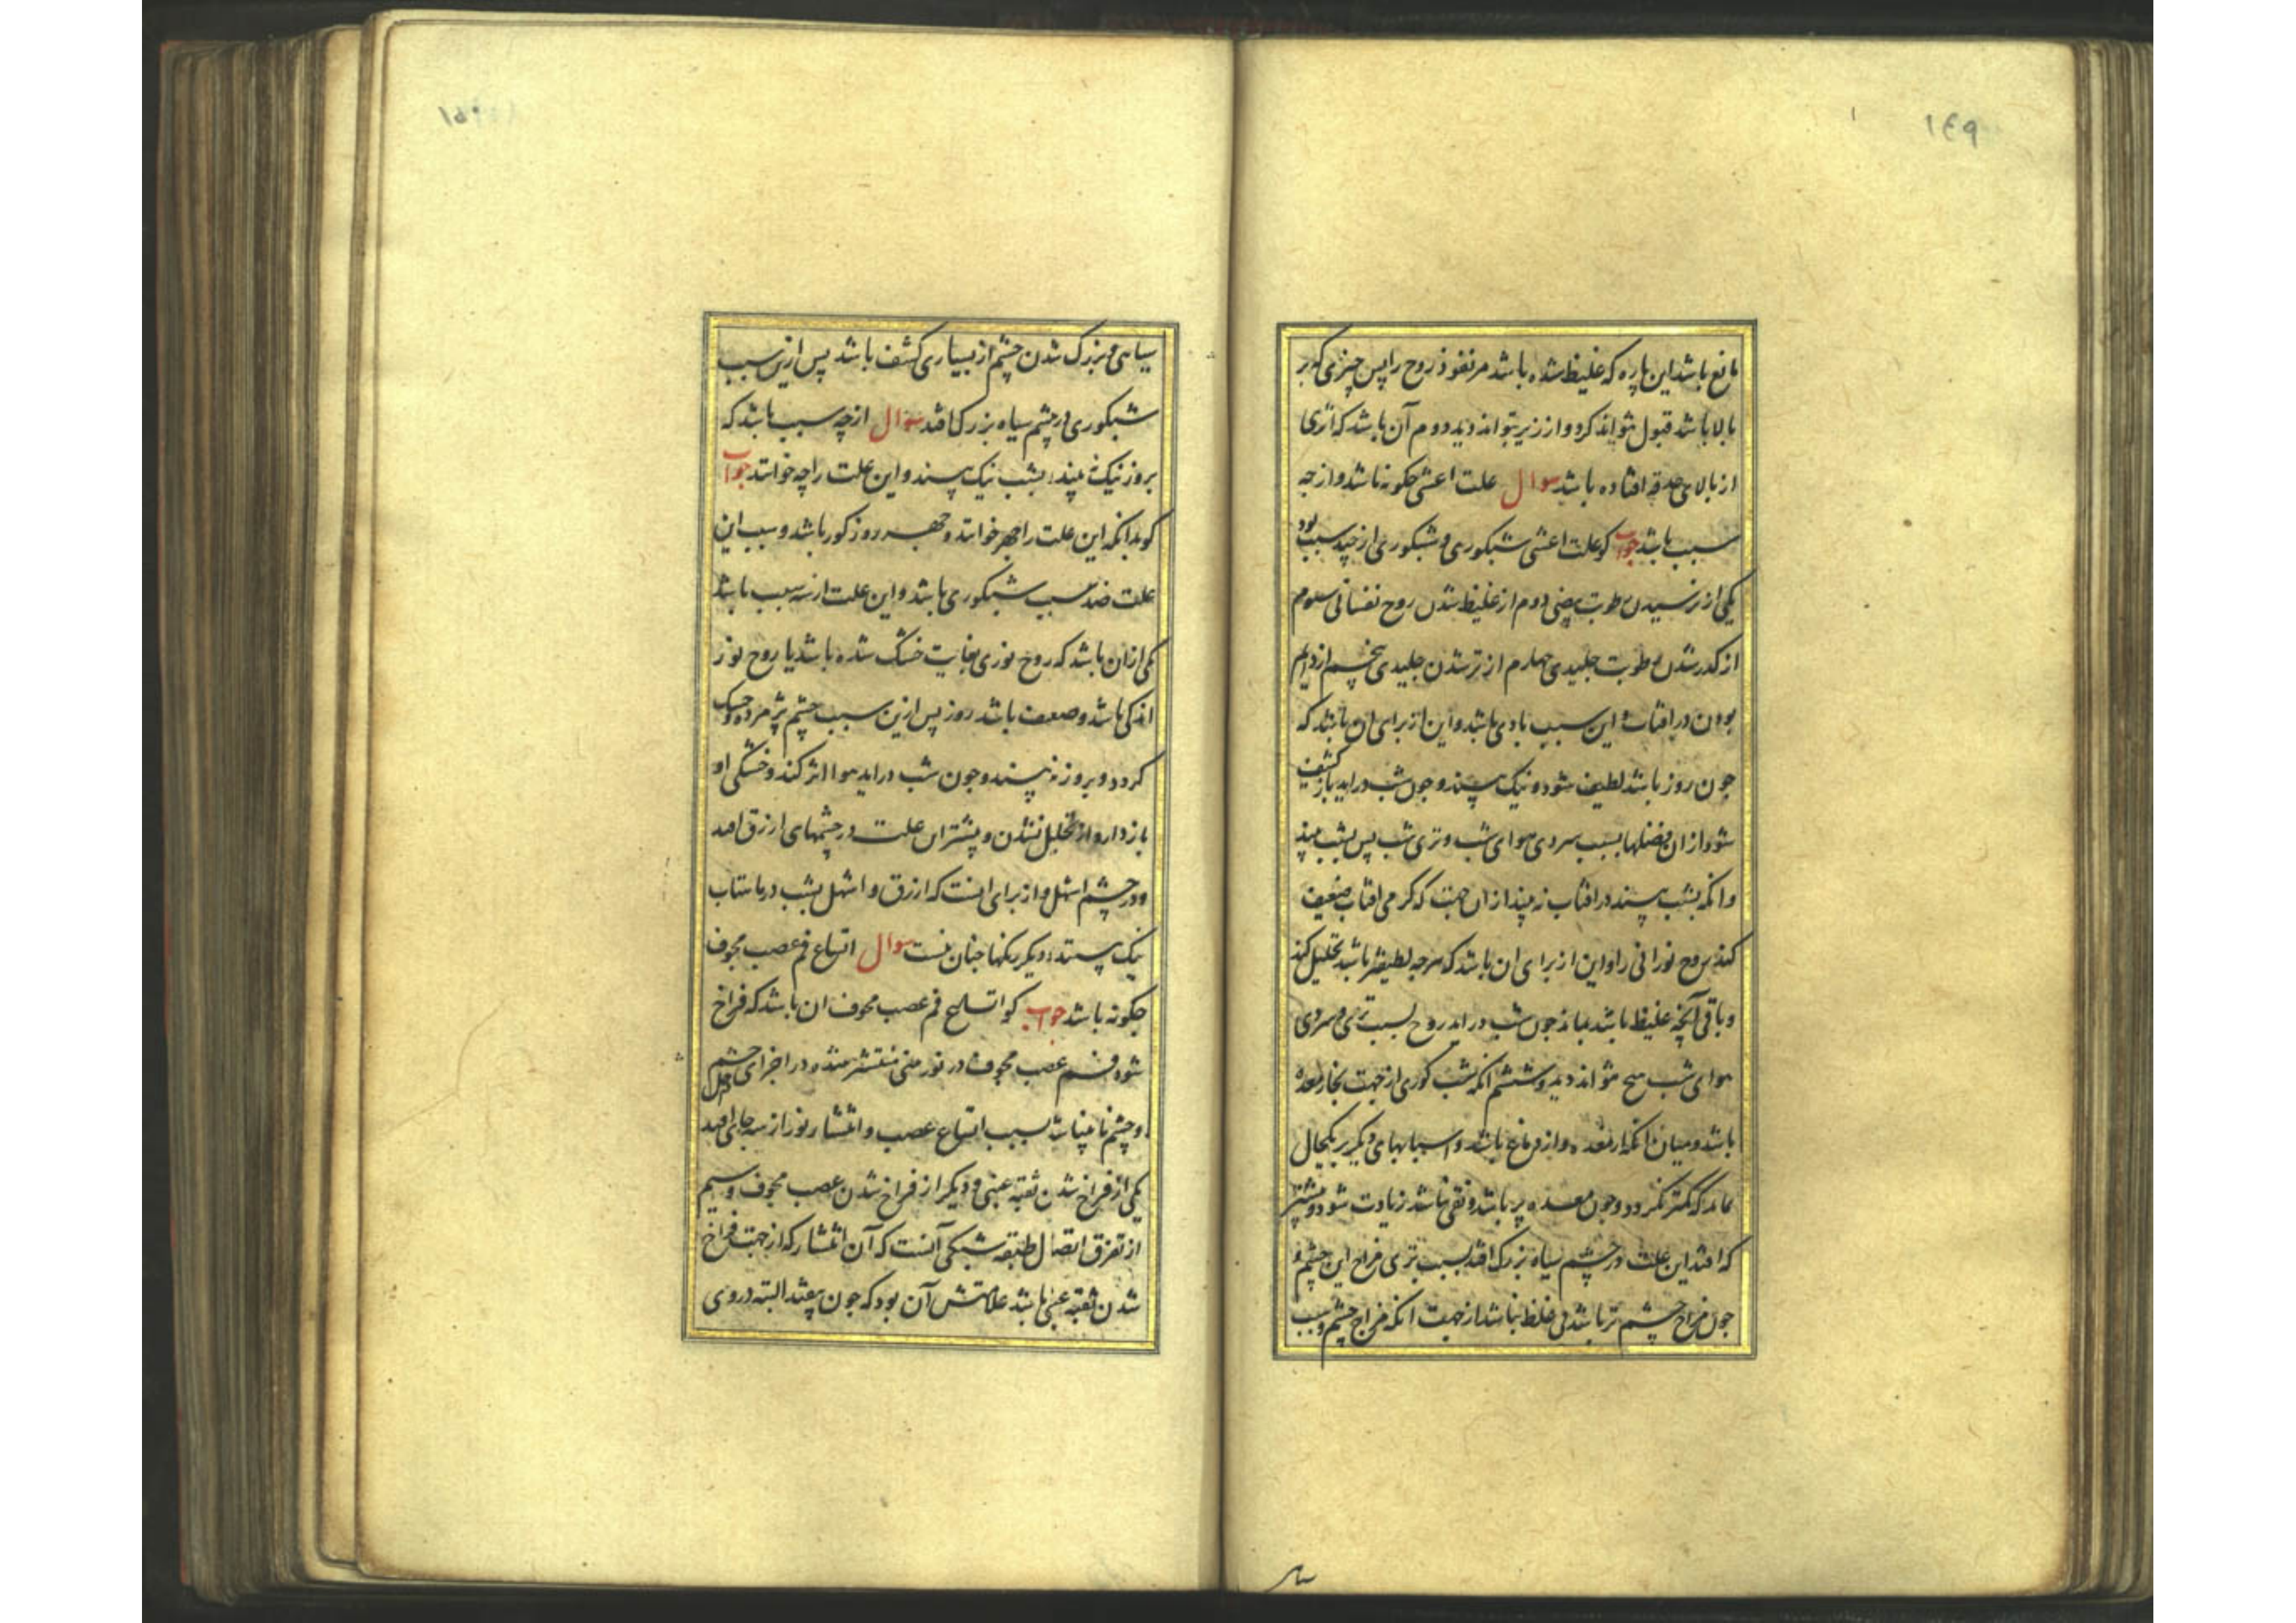 ١٤٩
مانع باشد این پاره که غلیظ شده باشد مر نفوذ روح را پس چیزی که بر
بالا باشد قبول نتواند کرد و از زیر بتواند دید دوم آن باشد که اثری
از بالای حدقه افتاده باشد سوال علت اعشی چکونه باشد و از چه
سبب باشد جواب کو علت اعشی شبکوری و شبکوری از چند سبب بود
یکی از رطوبت بیضی دوم از غلیظ شدن روح نفسانی سوم
از کدر شدن رطوبت جلیدی چهارم از تر شدن جلیدی پنجم از دایم
بودن در افتاب و این سبب بادی باشد و این از برای ان باشد که
جون روز باشد لطیف شود و نیک بیند و جون شب دراید باز کثیف
شود از ان فضلها بسبب سردی هوای شب و تری شب پس بشب نبیند
و انکه بشب بیند در افتاب نه بیند از ان جهت که کرمی افتاب ضعیف
کند روح نورانی را و این از برای ان باشد که هرچه لطیفتر باشد تحلیل کند
و باقی آنچه غلیظ باشد بماند جون شب دراید روح بسبب تری و سردی
هوای شب هیچ نتواند دید و ششم انکه شب کوری از جهت بخار معده
باشد و میان انکه از معده و از دماغ باشد و اسبابهای دیکر بر یکحال
بماند که کمتر نکردد و جون معده پر باشد و نقی نباشد زیادت شود و بیشتر
که افتد این علت در چشم سیاه بزرک افتد بسبب تری مزاج این چشم و
جون مزاج چشم تر باشد بی غلظ نباشد از جهت انکه مزاج چشم و سبب
سیا
١٥٠
سیاهی و بزرک شدن چشم از بسیاری کثف باشد پس ازین سبب
شبکوری در چشم سیاه بزرک افتد سوال از چه سبب باشد که
بروز نیک نه بیند و بشب نیک بیند و این علت را چه خوانند جواب
کو بدانکه این علت را جهر خوانند و جهر روز کور باشد و سبب این
علت ضد سبب شبکوری باشد و این علت از سه سبب باشد
یکی از ان باشد که روح نوری بغایت خشک شده باشد یا روح نور
اندکی باشد و ضعیف باشد روز پس ازین سبب چشم پژمرده و خشک
کردد و بروز نه بیند و جون شب دراید هوا اثر کند و خشکی او
باز دارد از تحلیل شدن و بیشتر این علت در چشمهای ازرق افتد
و در چشم اشهل و از برای اینست که ازرق و اشهل بشب در ماهتاب
نیک بیند و دیکر رنکها چنان نیست سوال اتساع فم عصب مجوف
چکونه باشد جواب کو اتساع فم عصب مجوف ان باشد که فراخ
شود فم عصب مجوف در نور منتشر شده در اجزای چشم
و چشم نابینا شد بسبب اتساع عصب و انتشار نور از سه جای افتد
یکی از فراخ شدن ثقبه عنبی و دیکر از فراخ شدن عصب مجوف و سیم
از تفرق اتصال طبقه شبکی آنست که آن انتشار که از جهت فراخ
شدن ثقبه عنبی باشد علامتش آن بود که جون بیفتد البته در وی